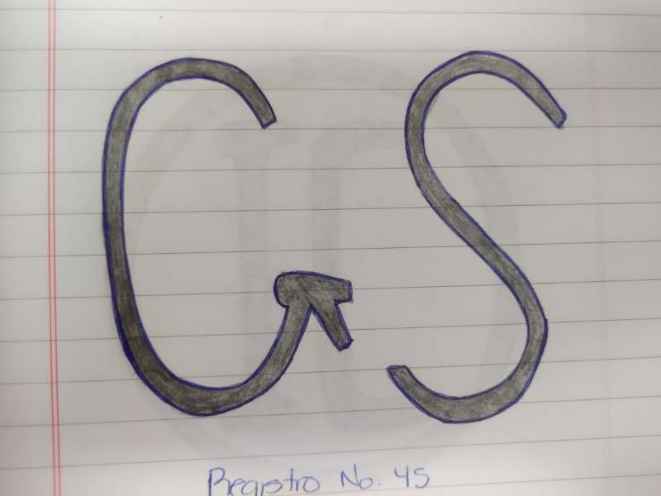 GS
Registro No. 45